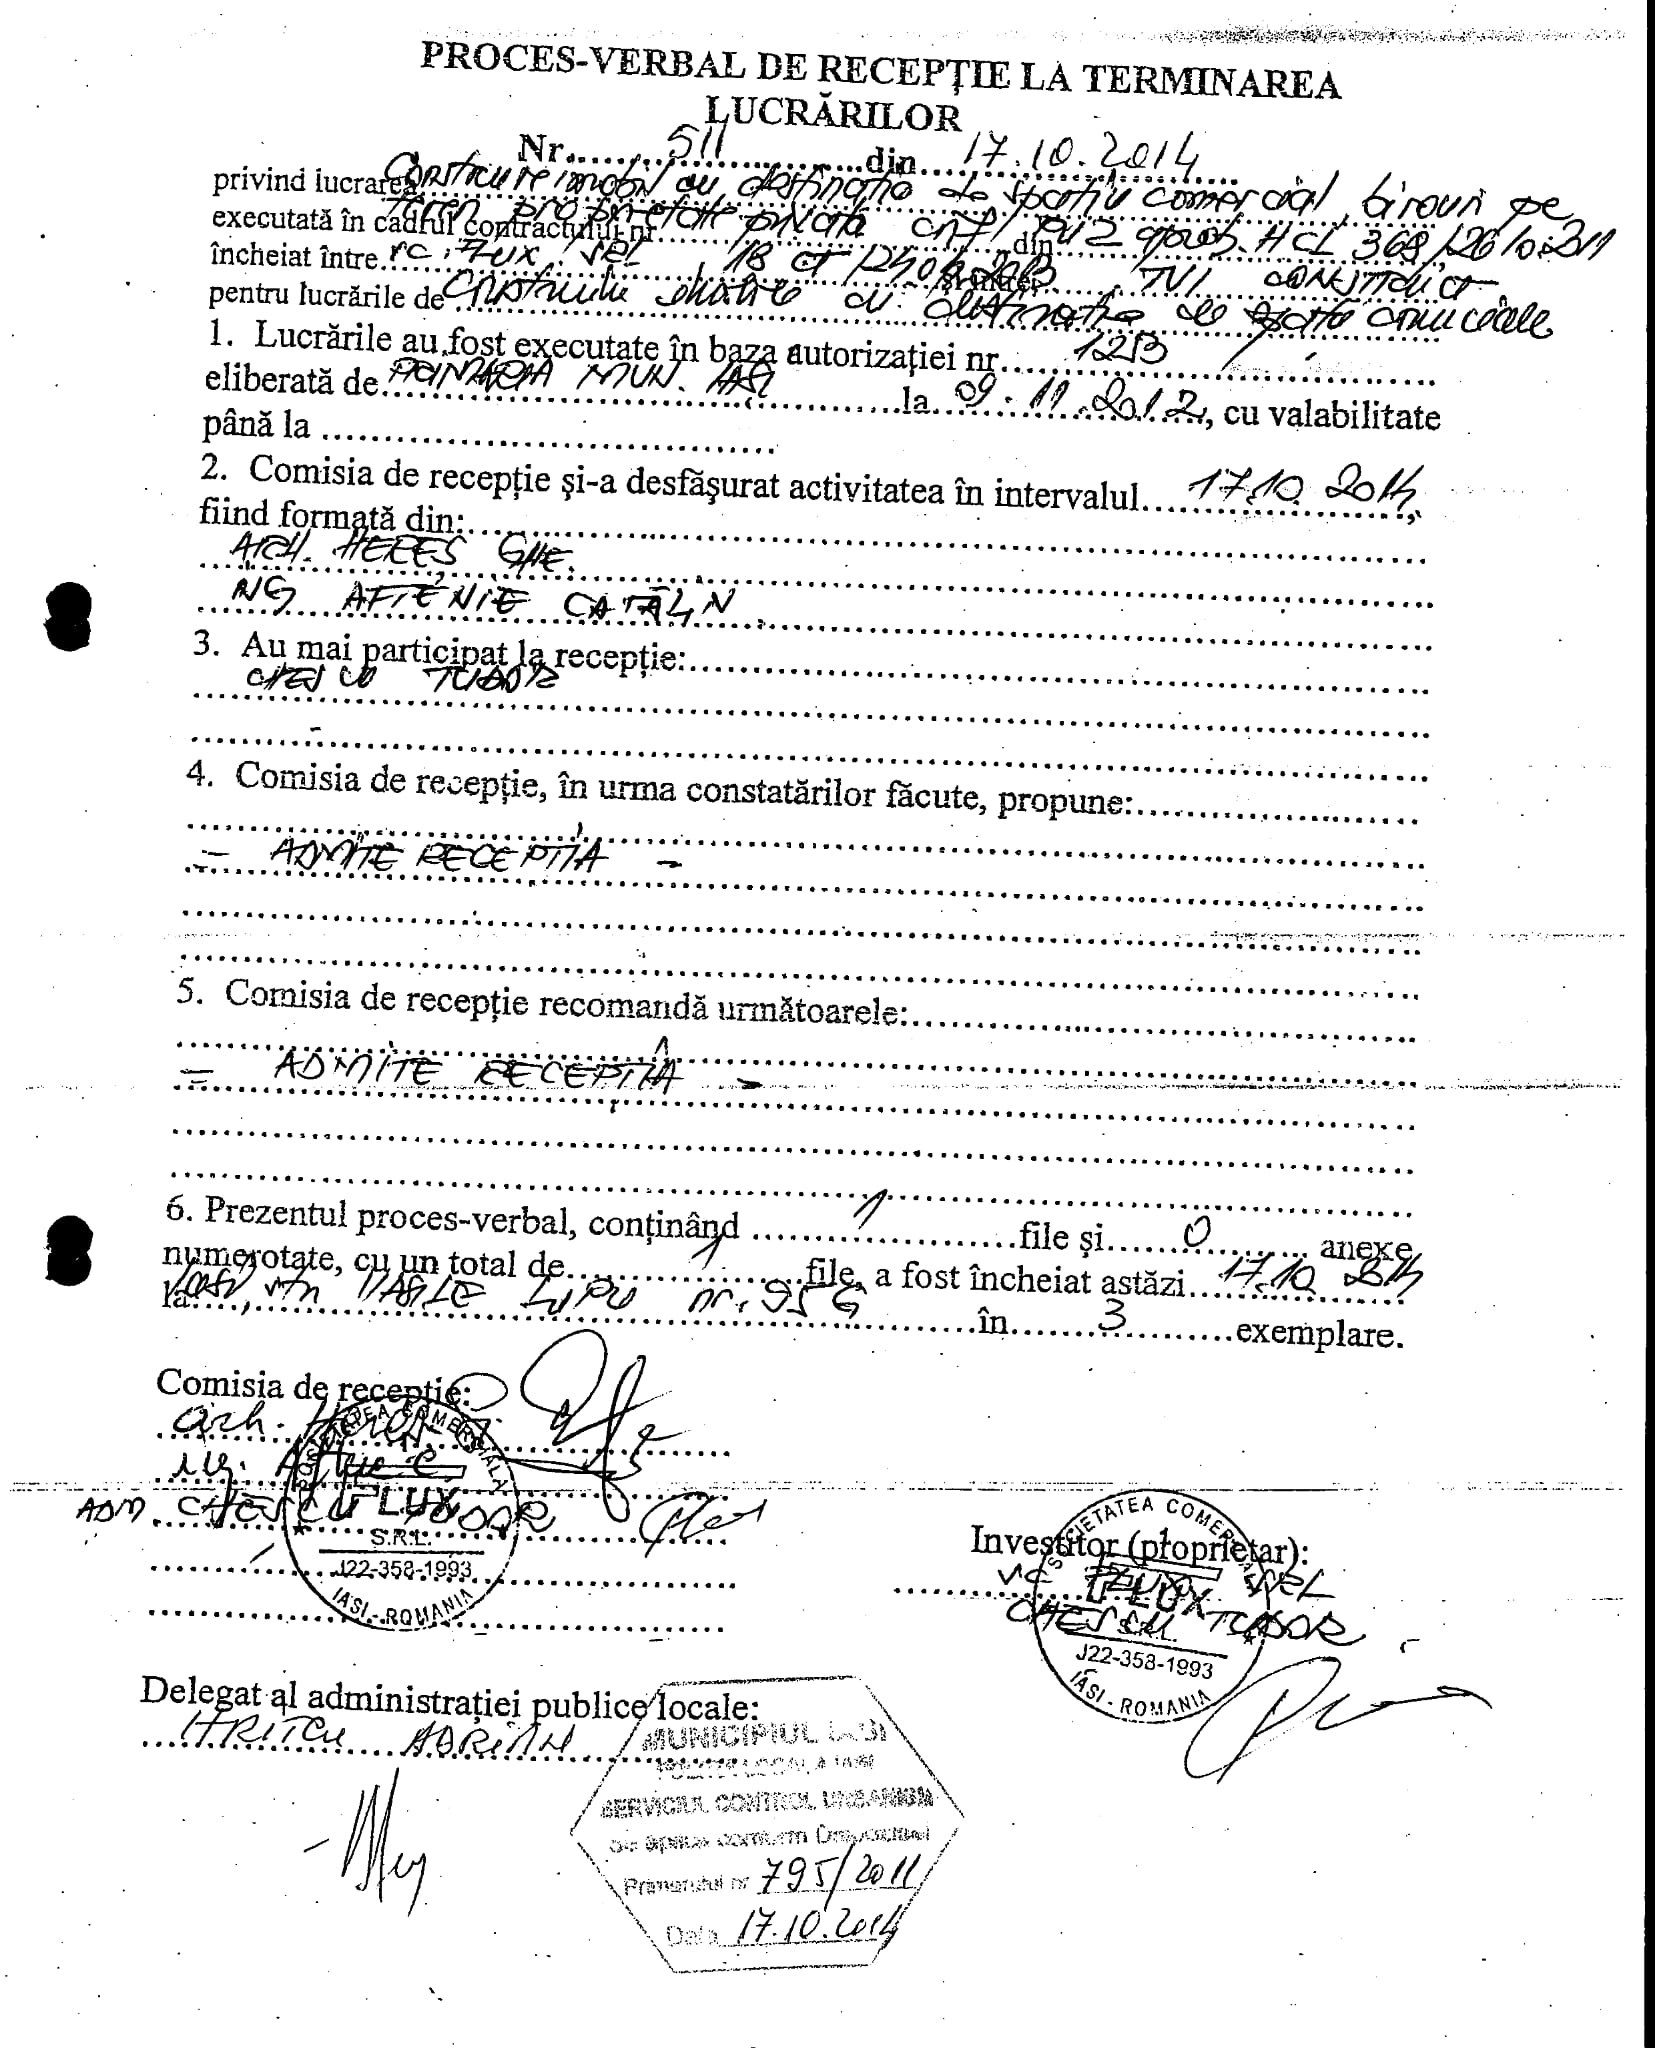 PROCES-VERBAL DE RECEPȚIE LA TERMINAREA
LUCRĂRILOR
Nr. 511 din 17.10.2014
privind lucrarea Construire imobil cu destinatia de spatiu comercial, birouri pe
teren proprietate privata aprob. HCL 369/26.10.2011
executată în cadrul contractului nr. din
încheiat între SRL 18 CONSTRUCT
pentru lucrările de cu destinatia de comerciale
1. Lucrările au fost executate în baza autorizației nr. 1213
eliberată de PRIMARIA MUN. IASI la 09.11.2012, cu valabilitate
până la
2. Comisia de recepție și-a desfășurat activitatea în intervalul 17.10.2014,
fiind formată din:
ARH. HEREȘ GHE.
ING AFTENIE CATĂLIN
3. Au mai participat la recepție:
CHESCU TUDOR
4. Comisia de recepție, în urma constatărilor făcute, propune:
- ADMITE RECEPTIA -
5. Comisia de recepție recomandă următoarele:
= ADMITE RECEPTIA -
6. Prezentul proces-verbal, conținând 1 file și 0 anexe
numerotate, cu un total de 1 file, a fost încheiat astăzi 17.10.2014
la Iasi, VASILE LUPU nr. 95 G în 3 exemplare.
Comisia de recepție:
arh. Hereș
ing. Aftenie C.
ADM. CHESCU TUDOR
SOCIETATEA COMERCIALĂ
FLUX
S.R.L.
J22-358-1993
IASI - ROMANIA
Investitor (proprietar):
SC FLUX SRL
CHESCU TUDOR
SOCIETATEA COMERCIALĂ
FLUX
S.R.L.
J22-358-1993
IASI - ROMANIA
Delegat al administrației publice locale:
HRITCU ADRIAN
MUNICIPIUL IASI
POLITIA LOCALA IASI
SERVICIUL CONTROL URBANISM
Se aplica conform Dispozitiei
Primarului nr 795/2011
Data 17.10.2014